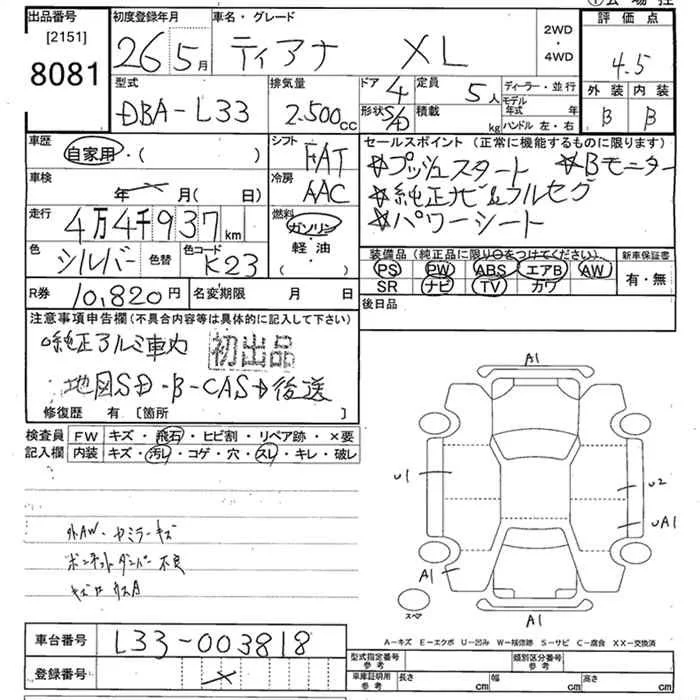 出品番号 初度登録年月 車名・グレード 2WD・4WD 評価点
[2151]
8081 26 5月 ティアナ XL 4.5
型式 排気量 ドア 4 定員 5人 ディーラー・並行 外装 内装
DBA-L33 2.500cc 形状 S/D 積載 kg モデル年式 年 B B
ハンドル 左・右
車歴 自家用・( ) シフト FAT セールスポイント(正常に機能するものに限ります)
☆プッシュスタート ☆Bモニター
車検 年 月( 日) 冷房 AAC ☆純正ナビ&フルセグ
走行 4万4千937km 燃料 ガソリン ☆パワーシート
軽油
( )
色 シルバー 色替 色コード K23 装備品(純正品に限り○をつけてください) 新車保証書
PS PW ABS エアB AW 有・無
R券 10,820円 名変期限 月 日 SR ナビ TV カワ
後日品
注意事項申告欄(不具合内容等は具体的に記入して下さい)
純正アルミ車内 初出品
地図SD・B-CAS 後送
修復歴 有 [箇所 ]
検査員 FW キズ・飛石・ヒビ割・リペア跡・×要
記入欄 内装 キズ・汚レ・コゲ・穴・スレ・キレ・破レ
A1
U1
U2
UA1
外AW・ドミラーキズ
ボンネットダンパー不良
A1
スペア
A1
A-キズ E-エクボ U-凹み W-板修跡 S-サビ C-腐食 XX-交換済
車台番号 L33-003818
型式指定番号 参考 類別区分番号 参考
登録番号 車庫証明用 参考 長さ cm 幅 cm 高さ cm